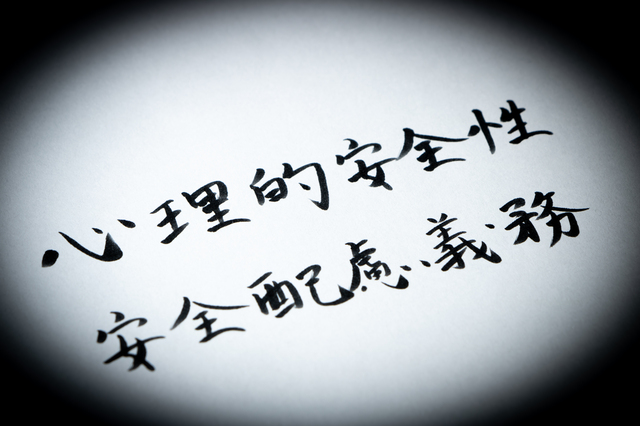 心理的安全性
安全配慮義務